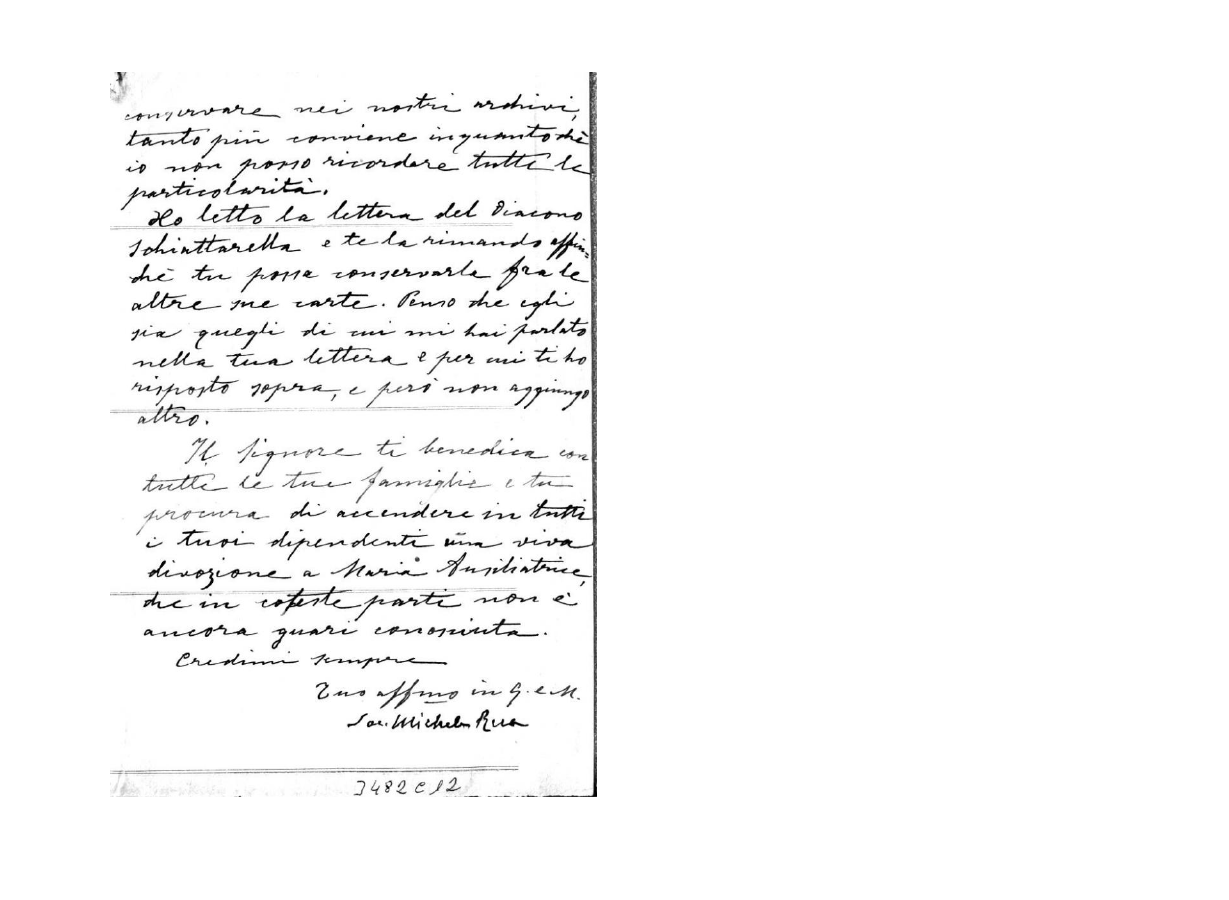 conservare nei nostri archivi,
tanto più conviene inquantochè
io non posso ricordare tutte le
particolarità.
Ho letto la lettera del Diacono
Schiattarella e te la rimando affin=
chè tu possa conservarla fra le
altre sue carte. Penso che egli
sia quegli di cui mi hai parlato
nella tua lettera e per cui ti ho
risposto sopra, e però non aggiungo
altro.
Il Signore ti benedica con
tutte le tue famiglie e tu
procura di accendere in tutti
i tuoi dipendenti una viva
divozione a Maria Ausiliatrice,
che in coteste parti non è
ancora guari conosciuta.
Credimi sempre
Tuo affmo in G. e M.
Sac. Michele Rua
3482 C 12